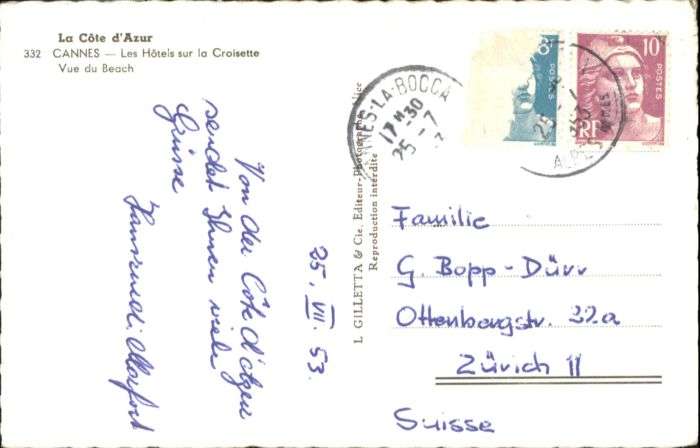 La Côte d'Azur
332 CANNES — Les Hôtels sur la Croisette
Vue du Beach
25. VII. 53.
Von der Côte d'Azur
sendet Ihnen viele
Grüsse
Hansruedi
L. GILLETTA & Cie, Editeur-Photographe, Nice
Reproduction interdite
CANNES-LA-BOCCA
17 H 30
25 - 7
8F
10F
POSTES
RF
Familie
G. Bopp-Dürr
Ottenbergstr. 22a
Zürich 11
Suisse